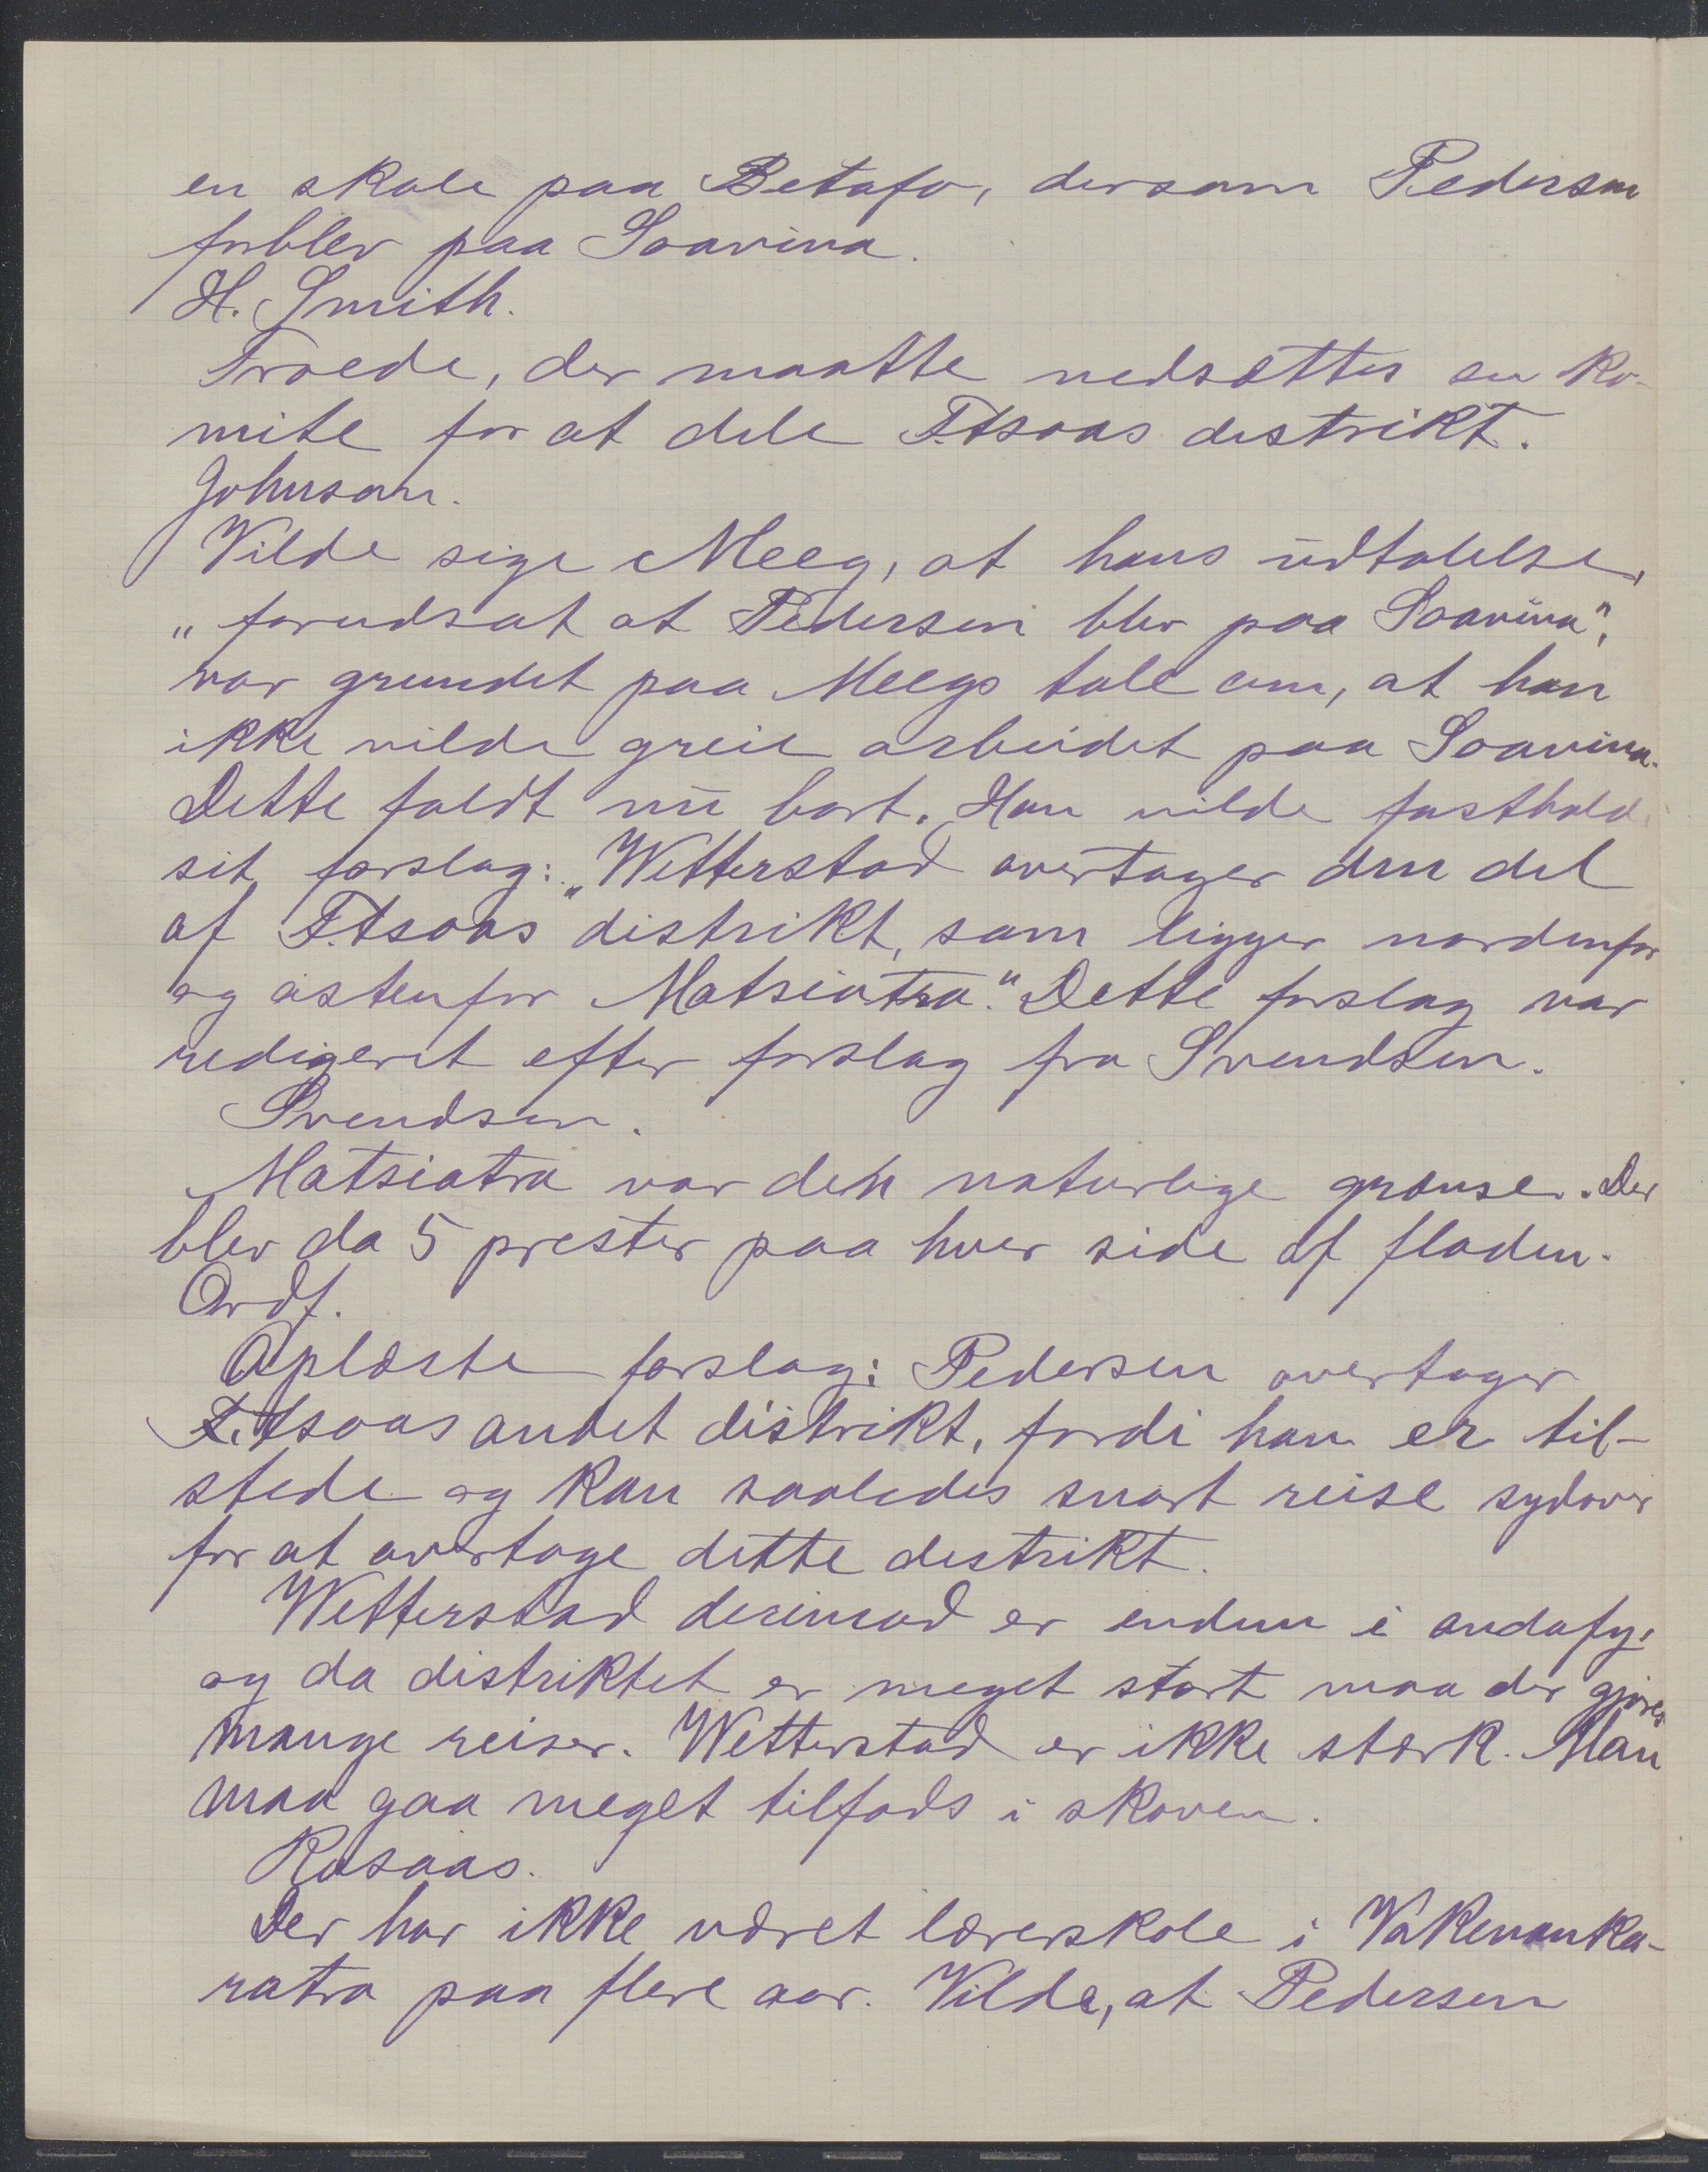 en skole paa Betafo, dersom Pedersen
forblev paa Soavina.
H. Smith.
Troede, der maatte nedsættes en ko-
mite for at dele F.tsoas distrikt.
Johnson.
Vilde sige Meeg, at hans udtalelse,
„forudsat at Pedersen blev paa Soavina",
var grundet paa Meegs tale om, at han
ikke vilde greie arbeidet paa Soavina.
Dette faldt nu bort. Han vilde fastholde
sit forslag: „Wetterstad overtager den del
af F.tsoas distrikt, som ligger nordenfor
og østenfor Matsiatra." Dette forslag var
redigeret efter forslag fra Svendsen.
Svendsen.
Matsiatra var den naturlige grænse. Der
blev da 5 prester paa hver side af floden.
Ordf.
Oplæste forslag: Pedersen overtager
F.tsoas andet distrikt, fordi han er til-
stede og kan saaledes snart reise sydover
for at overtage dette distrikt.
Wetterstad derimod er endnu i andafy,
og da distriktet er meget stort maa der gjøres
mange reiser. Wetterstad er ikke stærk. Man
maa gaa meget tilfods i skoven.
Rosaas.
Der har ikke været lærerskole i Vakenanka-
ratra paa flere aar. Vilde, at Pedersen